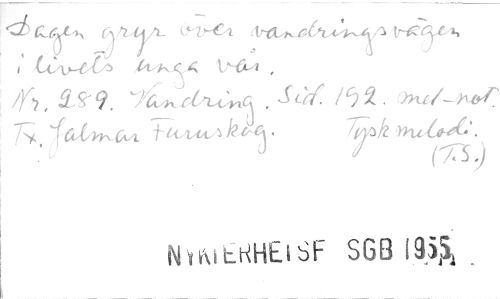 Dagen gryr över vandringsvägen
i livets unga vår.
Nr. 289. Vandring. Sid. 192. med not.
Tx. Jalmar Furuskog. Tysk melodi.
(T.S.)
NYKTERHETSF SGB 1955